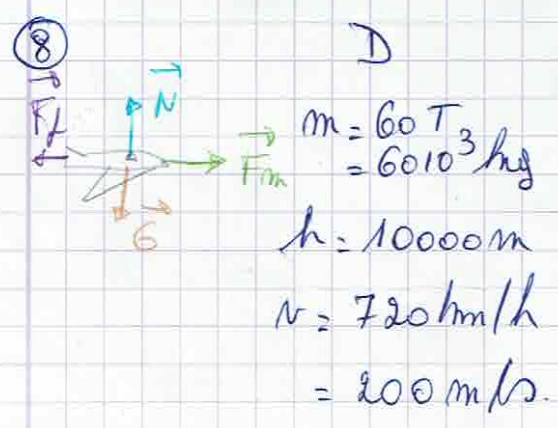 ⑧
D
Ff
N
Fm
G
m = 60 T
= 60 10³ kg
h = 10000 m
v = 720 km/h
= 200 m/s.